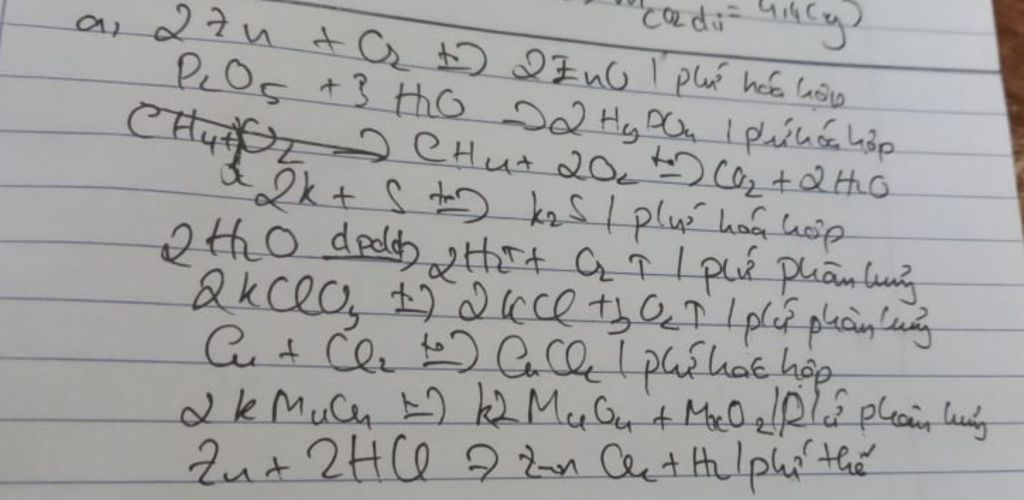 CO2 dư = 4,4 (g)
a, 2Zn + O2 t°→ 2ZnO | pứ hoá hợp
P2O5 + 3 H2O → 2H3PO4 | pứ hoá hợp
CH4 + 2O2 t°→ CO2 + 2H2O
2K + S t°→ K2S | pứ hoá hợp
2H2O đpdd→ 2H2↑ + O2 ↑ | pứ phân huỷ
2KClO3 t°→ 2KCl + 3O2↑ | pứ phân huỷ
Cu + Cl2 t°→ CuCl2 | pứ hoá hợp
2KMnO4 t°→ K2MnO4 + MnO2 | pứ phân huỷ
Zn + 2HCl → ZnCl2 + H2 | pứ thế